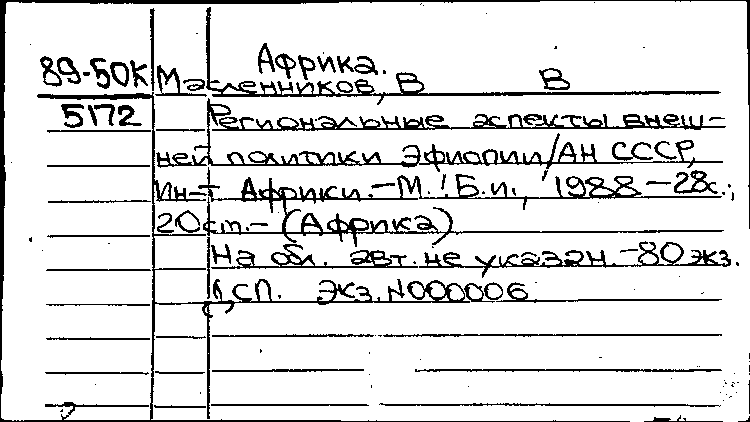 Африка.
89-50К Масленников, В В
5172 Региональные аспекты внеш-
ней политики Эфиопии/АН СССР,
Ин-т Африки.-М.:Б.и., 1988-28с.;
20 cm.- (Африка)
На обл. авт. не указан.-80 экз.
СП. Экз.N000006.